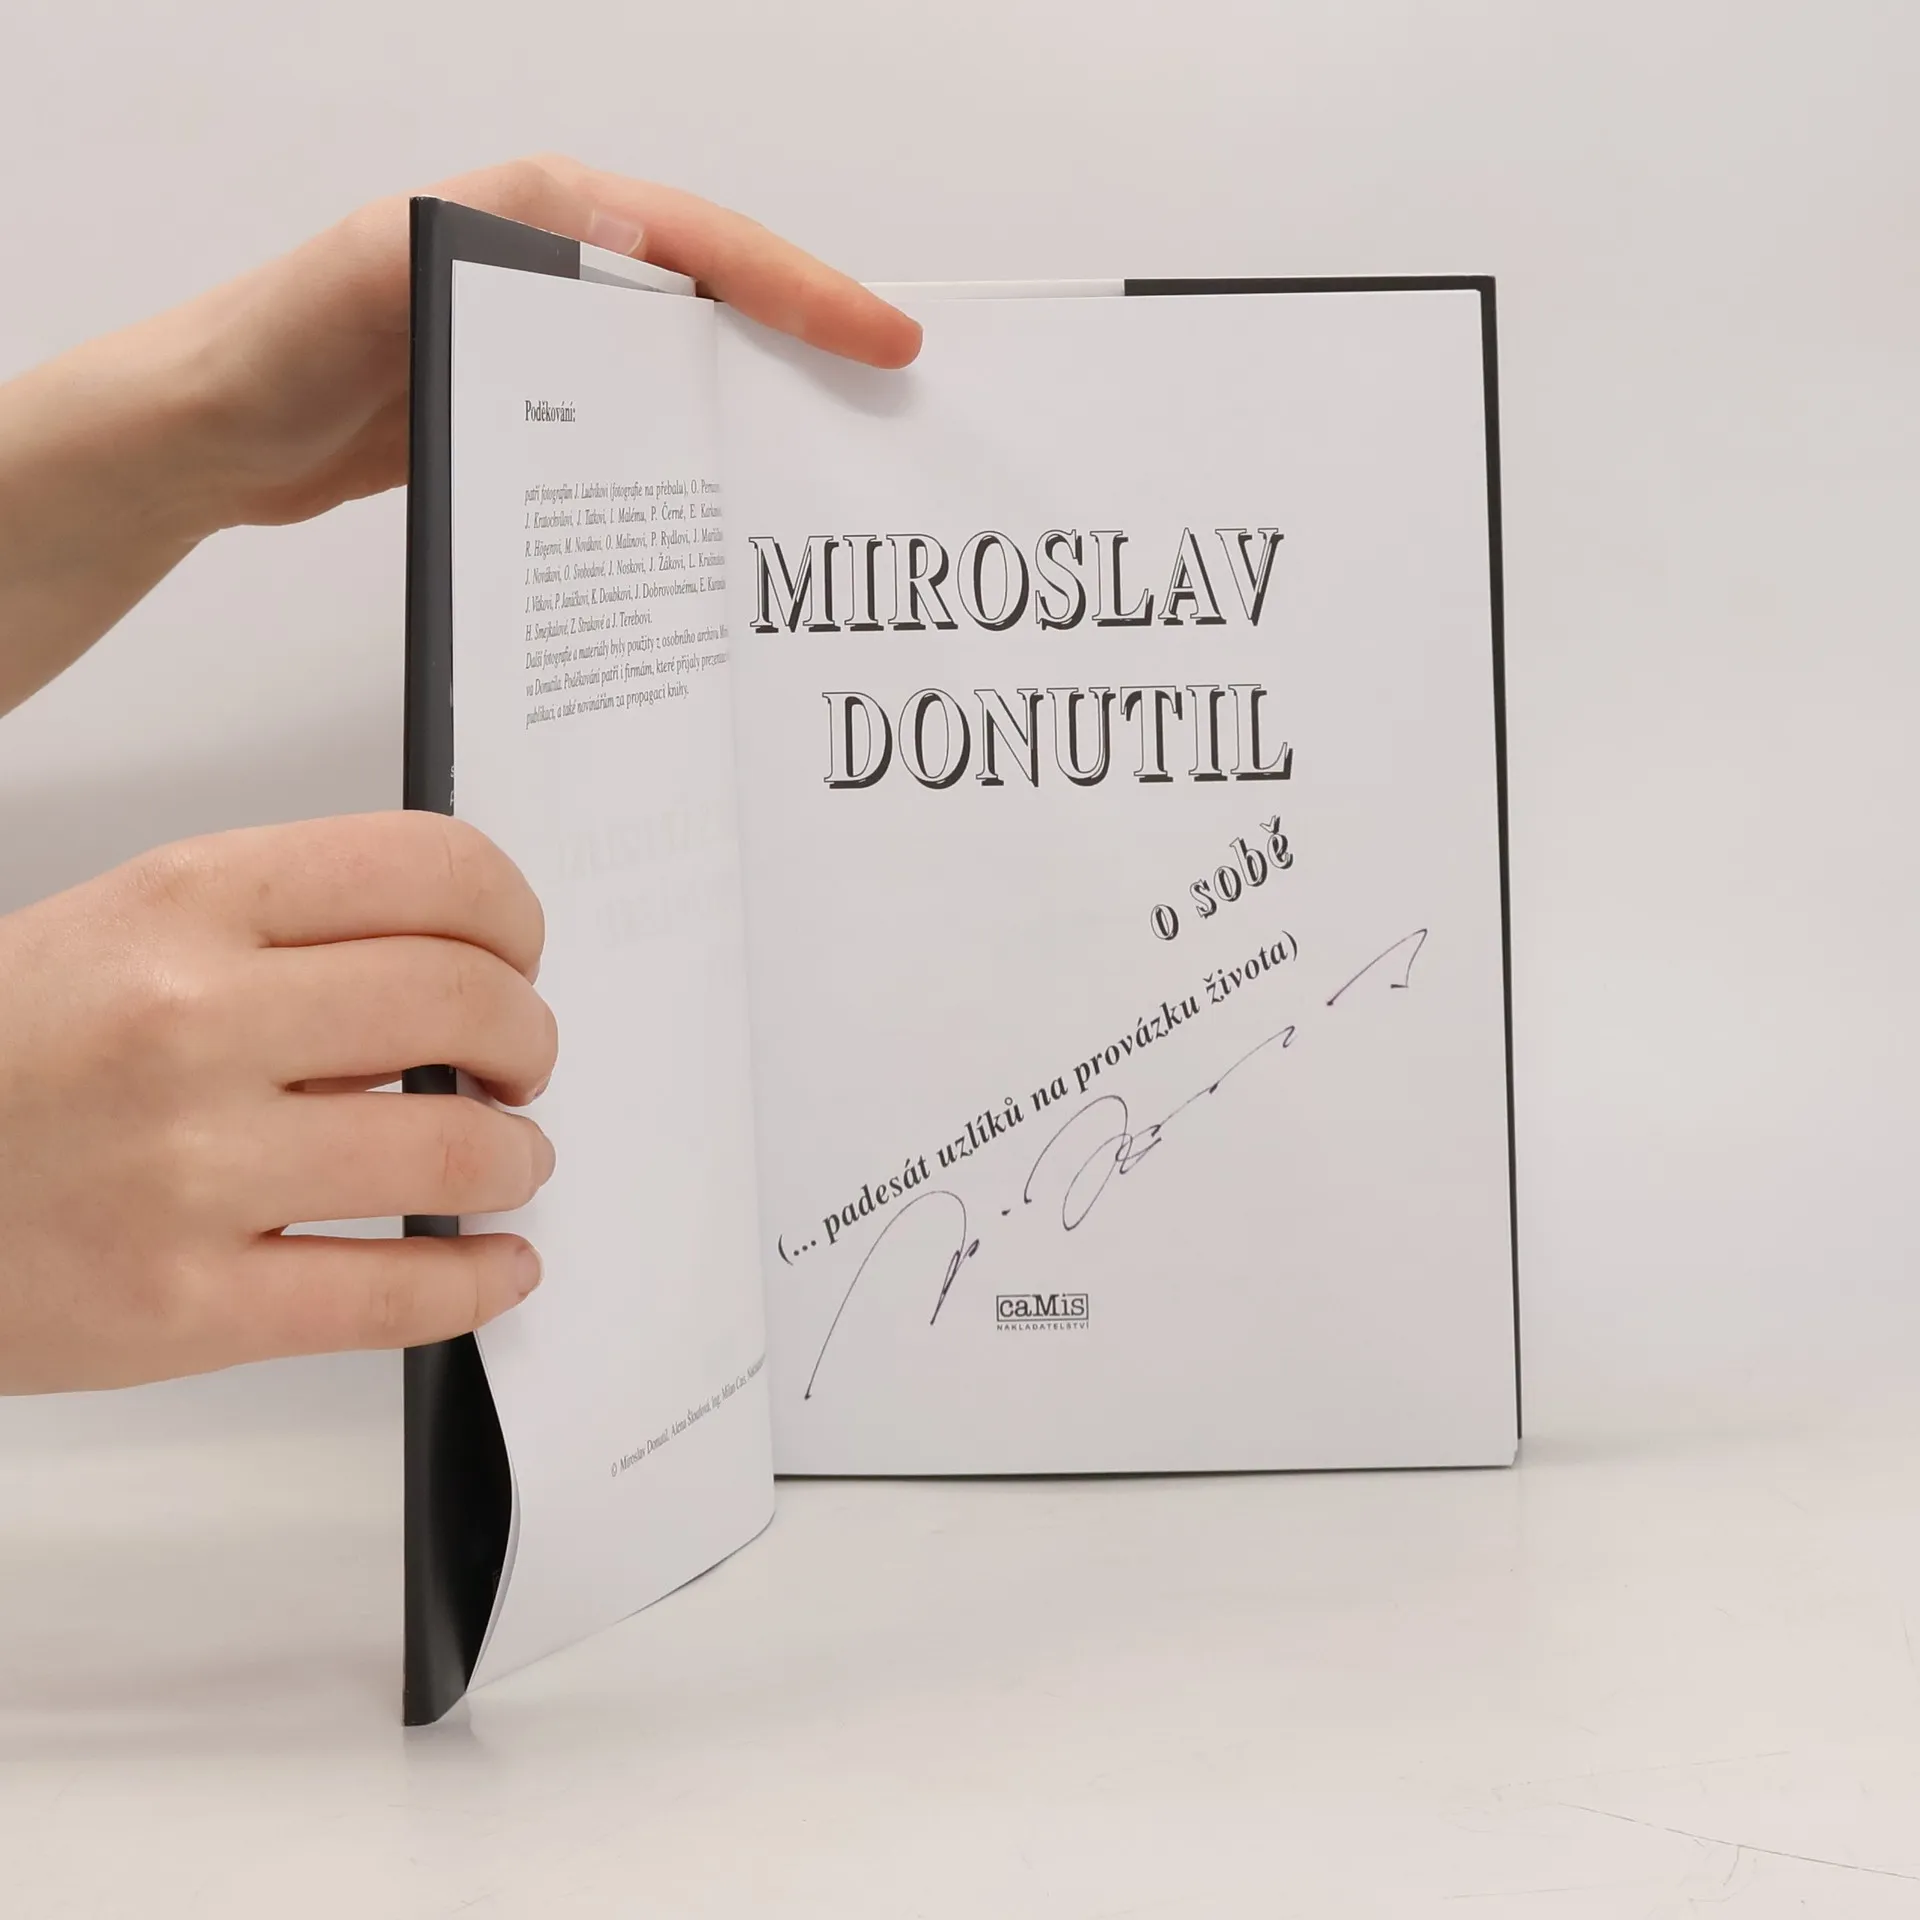 Poděkování:
patří fotografům J. Ludvíkovi (fotografie na přebalu), O.
J. Kratochvílovi, J. Tatkovi, I. Malému, P. Černé, E.
R. Högerovi, M. Novákovi, O. Malinovi, P. Rydlovi, J.
J. Novákovi, O. Svobodové, J. Noskovi, J. Žákovi, L.
J. Vítkovi, P. Janíčkovi, K. Doubkovi, J. Dobrovolnému, E.
H. Smejkalové, Z. Strakové a J. Terebovi.
Další fotografie a materiály byly použity z osobního archivu
va Donutila. Poděkování patří i firmám, které přijaly
publikaci, a také novinářům za propagaci knihy.
© Miroslav Donutil, Alena Ing. Milan
MIROSLAV
DONUTIL
o sobě
(... padesát uzlíků na provázku života)
caMis
NAKLADATELSTVÍ